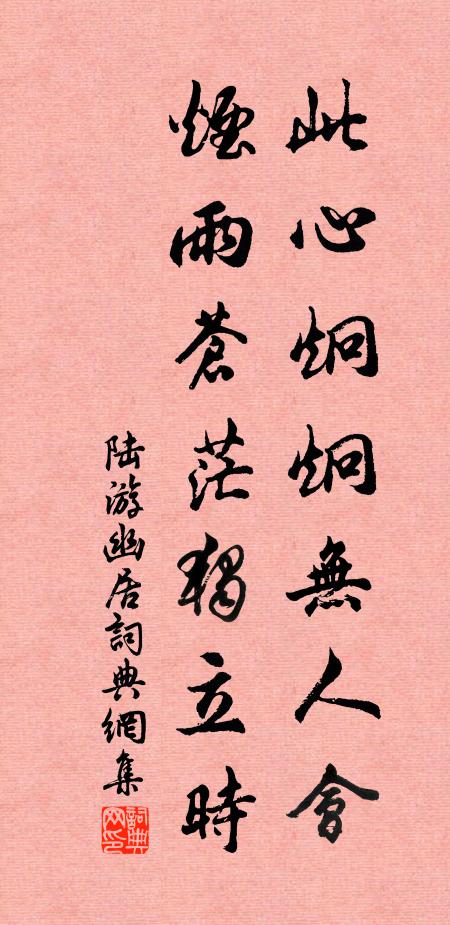 此心炯炯無人會
煙雨蒼茫獨立時
陆游幽居詞典網集
詞典網印